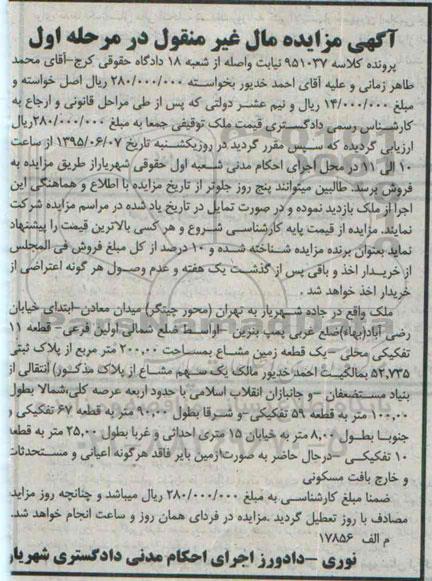 آگهی مزایده مال غیر منقول در مرحله اول
پرونده کلاسه ۹۵۱۰۳۷ نیابت واصله از شعبه ۱۸ دادگاه حقوقی کرج-آقای محمد
طاهر زمانی و علیه آقای احمد خدیور بخواسته ۲۸۰/۰۰۰/۰۰۰ ریال اصل خواسته و
مبلغ ۱۴/۰۰۰/۰۰۰ ریال و نیم عشر دولتی که پس از طی مراحل قانونی و ارجاع به
کارشناس رسمی دادگستری قیمت ملک توقیفی جمعا به مبلغ ۲۸۰/۰۰۰/۰۰۰ریال
ارزیابی گردیده که سپس مقرر گردید در روزیکشنبه تاریخ ۱۳۹۵/۰۶/۰۷ از ساعت
۱۰ الی ۱۱ در محل اجرای احکام مدنی شعبه اول حقوقی شهریاراز طریق مزایده به
فروش برسد. طالبین میتوانند پنج روز جلوتر از تاریخ مزایده با اطلاع و هماهنگی این
اجرا از ملک بازدید نموده و در صورت تمایل در تاریخ یاد شده در مراسم مزایده شرکت
نمایند. مزایده از قیمت پایه کارشناسی شروع و هر کسی بالاترین قیمت را پیشنهاد
نماید بعنوان برنده مزایده شناخته شده و ۱۰ درصد از کل مبلغ فروش فی المجلس
از خریدار اخذ و باقی پس از گذشت یک هفته و عدم وصول هر گونه اعتراضی از
خریدار اخذ خواهد شد .
ملک واقع در جاده شهریار به تهران (محور چیتگر) میدان معادن-ابتدای خیابان
رضی آباد(بهاء)ضلع غربی پمپ بنزین -اواسط ضلع شمالی-اولین فرعی- قطعه ۱۱
تفکیکی محلی -یک قطعه زمین مشاع بمساحت ۲۰۰,۰۰ متر مربع از پلاک ثبتی
۵۲,۷۳۵ بمالکیت احمد خدیور مالک یک سهم مشاع از پلاک مذکور) انتقالی از
بنیاد مستضعفان -و جانبازان انقلاب اسلامی با حدود اربعه عرصه کلی،شمالا بطول
۱۰۰,۰۰ متر به قطعه ۵۹ تفکیکی-و شرقا بطول ۹۰,۰۰ متر به قطعه ۶۷ تفکیکی و
جنوبا بطول ۸,۰۰ متر به خیابان ۱۵ متری احداثی و غربا بطول ۲۵,۰۰ متر به قطعه
۱۰ تفکیکی -درحال حاضر به صورت زمین بایر فاقد هرگونه اعیانی و مستحدثات
و خارج بافت مسکونی
ضمنا مبلغ کارشناسی به مبلغ ۲۸۰/۰۰۰/۰۰۰ ریال میباشد و چنانچه روز مزایده
مصادف با روز تعطیل گردید .مزایده در فردای همان روز و ساعت انجام خواهد شد.
م الف ۱۷۸۵۶
نوری -دادورز اجرای احکام مدنی دادگستری شهریار